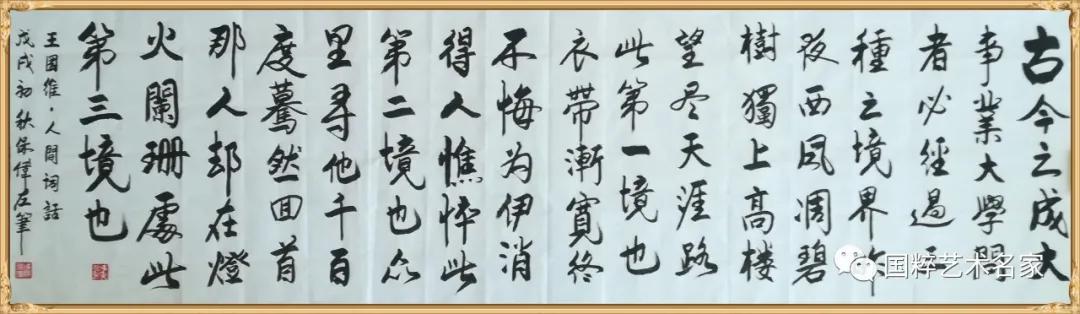 古今之成大
事業大學問
者必經過三
種之境界昨
夜西风凋碧
樹獨上高楼
望尽天涯路
此第一境也
衣帶漸寬终
不悔为伊消
得人憔悴此
第二境也众
里寻他千百
度驀然回首
那人却在燈
火闌珊處此
第三境也
王国維·人間词話
戊戌初秋保偉左筆
国粹艺术名家